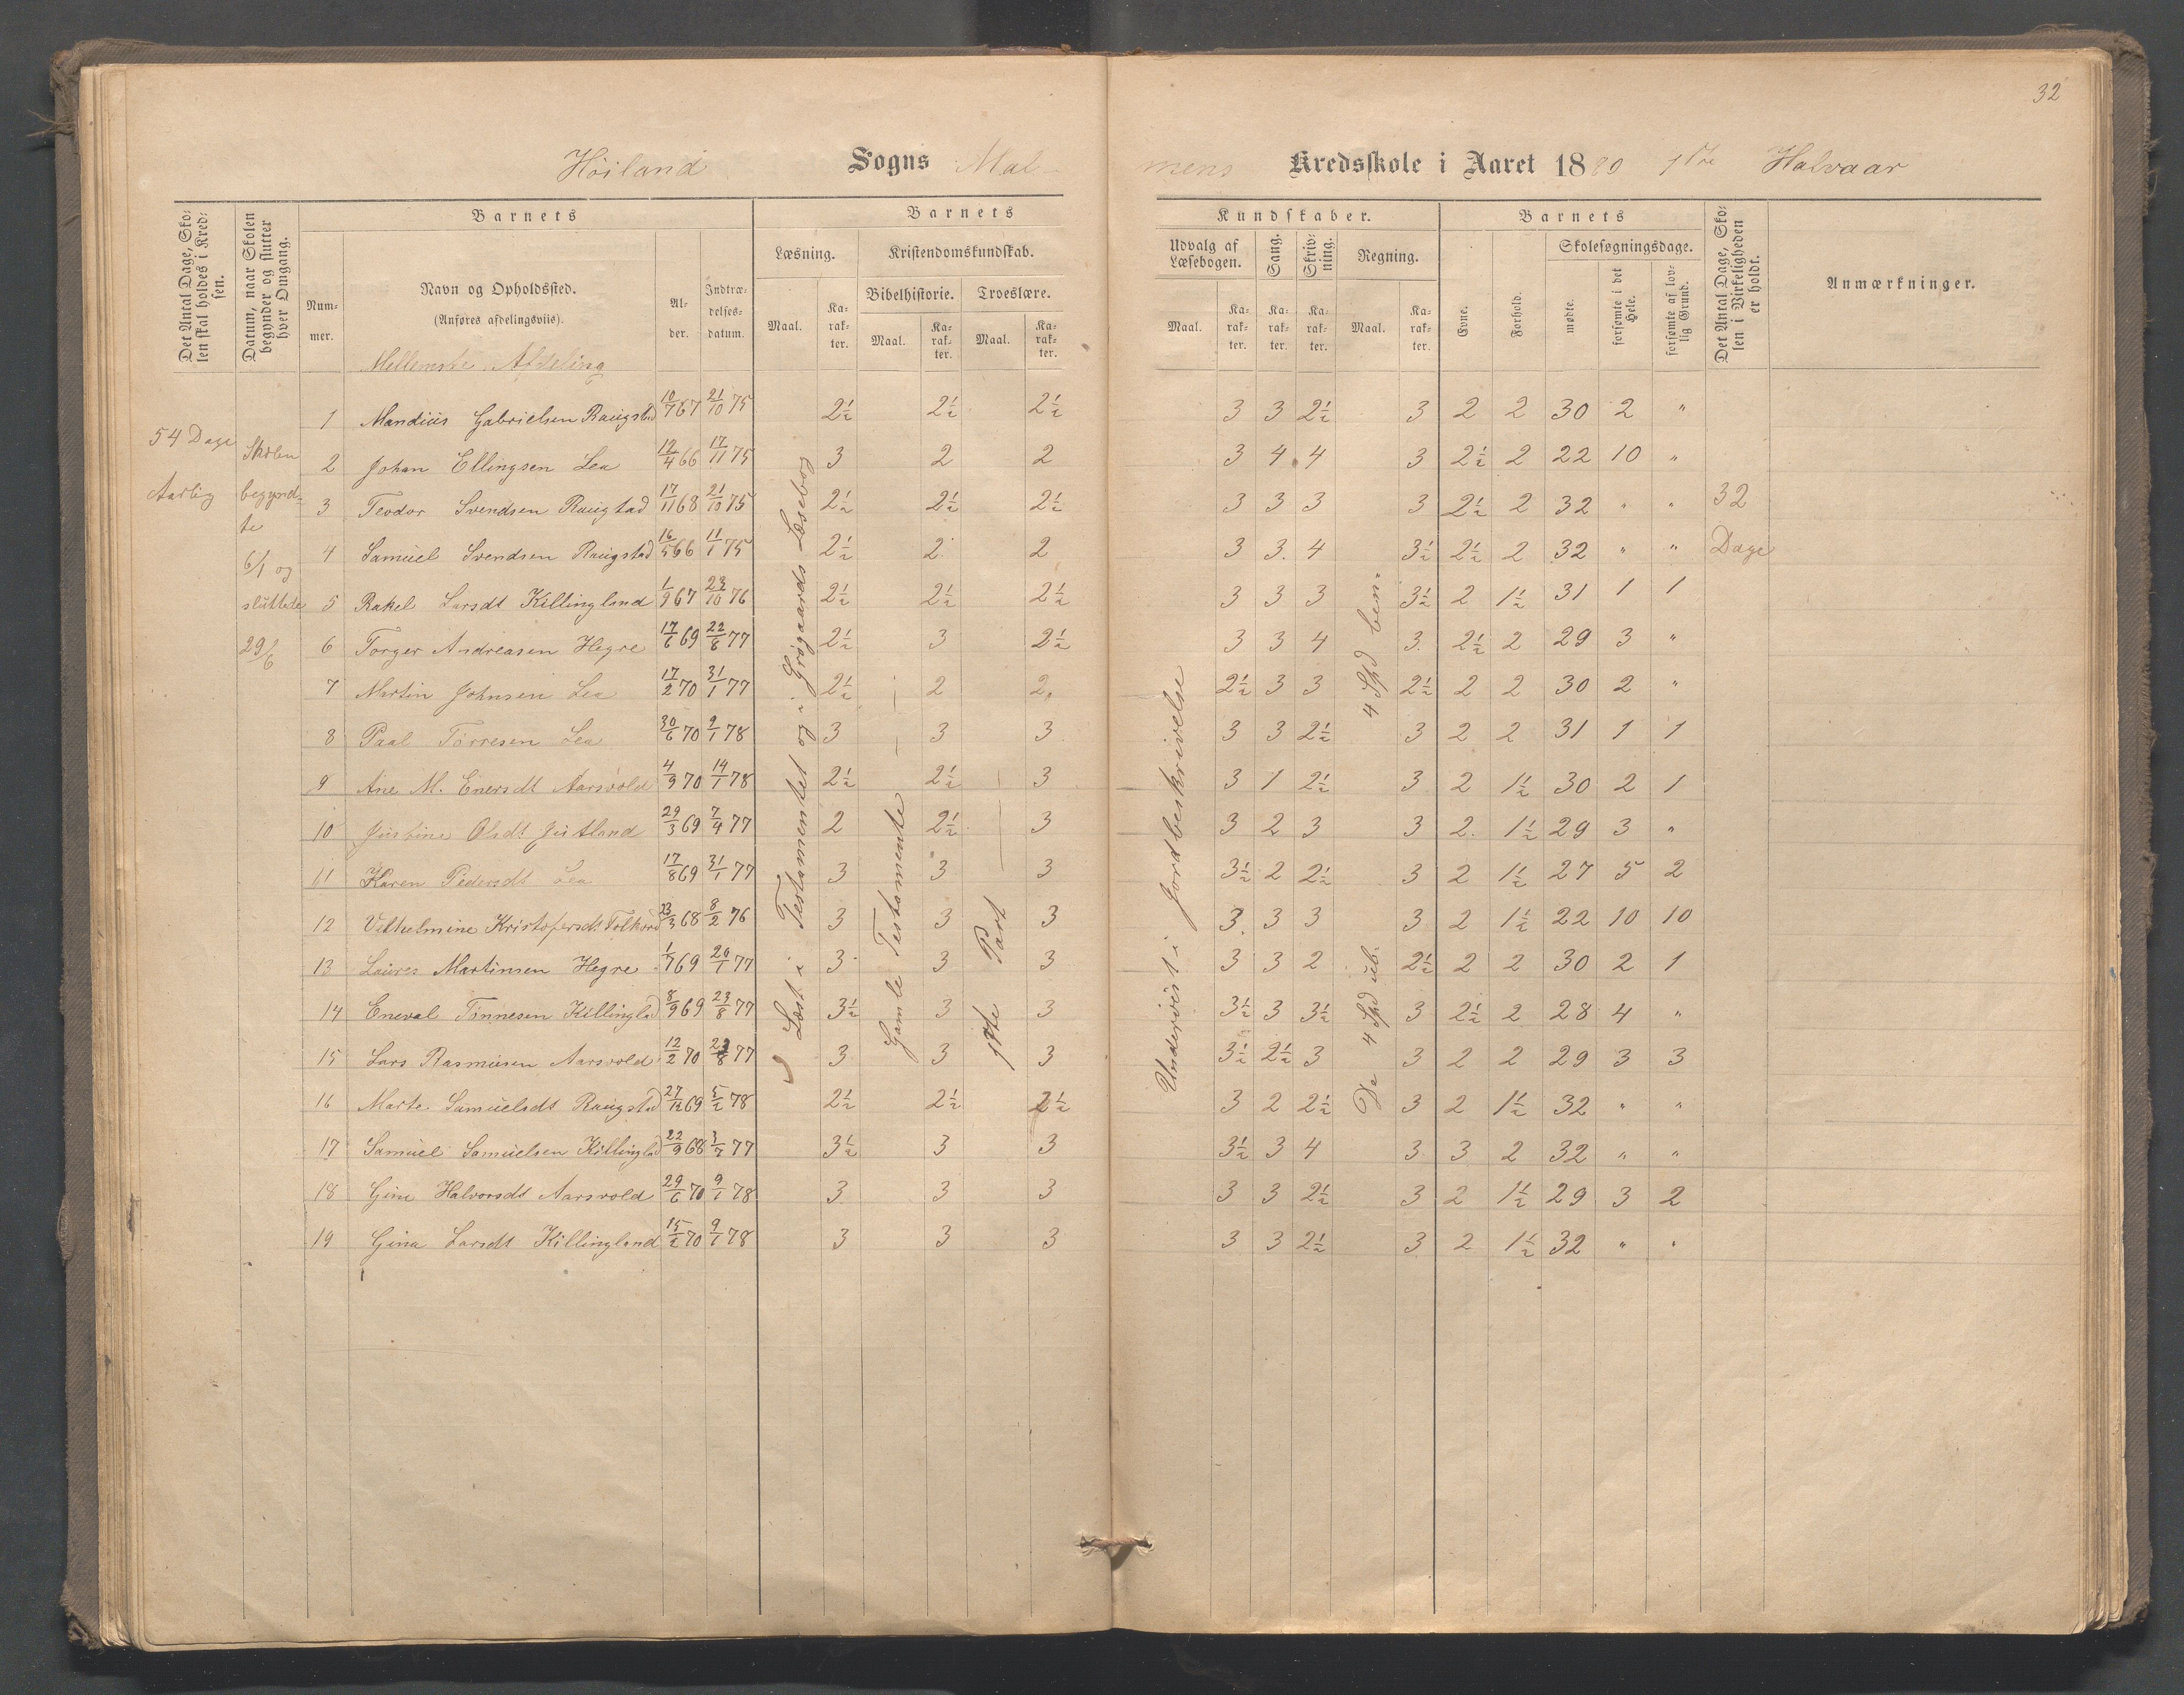 32
Höiland Sogns Mal- mens Kredsskole i Aaret 1880 1ste Halvaar
Det Antal Dage, Skolen skal holdes i Kredsen.
Datum, naar Skolen begynder og slutter hver Omgang.
Barnets
Nummer.
Navn og Opholdssted.
(Anføres afdelingsviis).
Mellemste Afdeling
Alder.
Indtrædelsesdatum.
Barnets Kundskaber.
Læsning. Maal. Karakter.
Kristendomskundskab.
Bibelhistorie. Maal. Karakter.
Troeslære. Maal. Karakter.
Udvalg af Læsebogen. Maal. Karakter.
Sang. Karakter.
Skrivning. Karakter.
Regning. Maal. Karakter.
Barnets
Evne. Forhold.
Skolesøgningsdage.
mødte. forsømte i det Hele. forsømte af lovlig Grund.
Det Antal Dage, Skolen i Virkeligheden er holdt.
Anmærkninger.
54 Dage
Aarlig
Skolen
begynd-
te
6/1 og
sluttete
29/6
Læst i Testamentet og i Grögaards Læsebog
Gamle Testamente
1ste Part
Underviist i Jordbeskrivelse
De 4 Spd ub. 4 Spd ben:
32
Dage
1 Mandius Gabrielsen Raugstad 10/7 67 21/10 75 2½ 2½ 2½ 3 3 2½ 3 2 2 30 2 "
2 Johan Ellingsen Lea 12/4 66 17/11 75 3 2 2 3 4 4 3 2½ 2 22 10 "
3 Teodor Svendsen Raugtad 17/11 68 21/10 75 2½ 2½ 2½ 3 3 3 3 2½ 2 32 " "
4 Samuel Svendsen Raugstad 16/5 66 11/1 75 2½ 2 2 3 3 4 3½ 2½ 2 32 " "
5 Rakel Larsdt Killingland 1/9 67 23/10 76 2½ 2½ 2½ 3 3 3 3½ 2 1½ 31 1 1
6 Torger Andreasen Hegre 17/6 69 22/8 77 2½ 3 2½ 3 3 4 3 2½ 2 29 3 "
7 Martin Johnsen Lea 17/2 70 31/1 77 2½ 2 2 2½ 3 3 2½ 2 2 30 2 "
8 Paal Tørresen Lea 30/6 70 9/1 78 3 3 3 3 3 2½ 3 2 2 31 1 1
9 Ane M. Enersdt Aarsvold 4/9 70 14/1 78 2½ 2½ 3 3 1 2½ 3 2 1½ 30 2 1
10 Justine Olsdt Jutland 29/3 69 7/4 77 2 2½ 3 3 2 3 3 2 1½ 29 3 "
11 Karen Pedersdt Lea 17/8 69 31/1 77 3 3 3 3½ 2 2½ 3 2 1½ 27 5 2
12 Vilhelmine Kristofersdt Folkvord 23/3 68 8/2 76 3 3 3 3 3 3 3 2 1½ 22 10 10
13 Laures Martinsen Hegre 1/7 69 20/1 77 3 3 3 3 3 2 2½ 2 2 30 2 1
14 Eneval Tönnesen Killinglad 8/9 69 23/8 77 3½ 3 3 3½ 3 3½ 3 2½ 2 28 4 "
15 Lars Rasmusen Aarsvold 12/2 70 23/8 77 3 3 3 3½ 2½ 3 3 2 2 29 3 3
16 Marte Samuelsdt Raugstad 27/12 69 5/2 78 2½ 2½ 2½ 3 2 2½ 3 2 1½ 32 " "
17 Samuel Samuelsen Killinglad 22/9 68 3/7 77 3½ 3 3 3½ 3 4 3 3 2 32 " "
18 Gine Halvorsdt Aarsvold 29/6 70 9/1 78 3 3 3 3 3 2½ 3 2 1½ 29 3 2
19 Gina Larsdt Killingland 15/2 70 9/1 78 3 3 3 3 3 2½ 3 2 1½ 32 " "